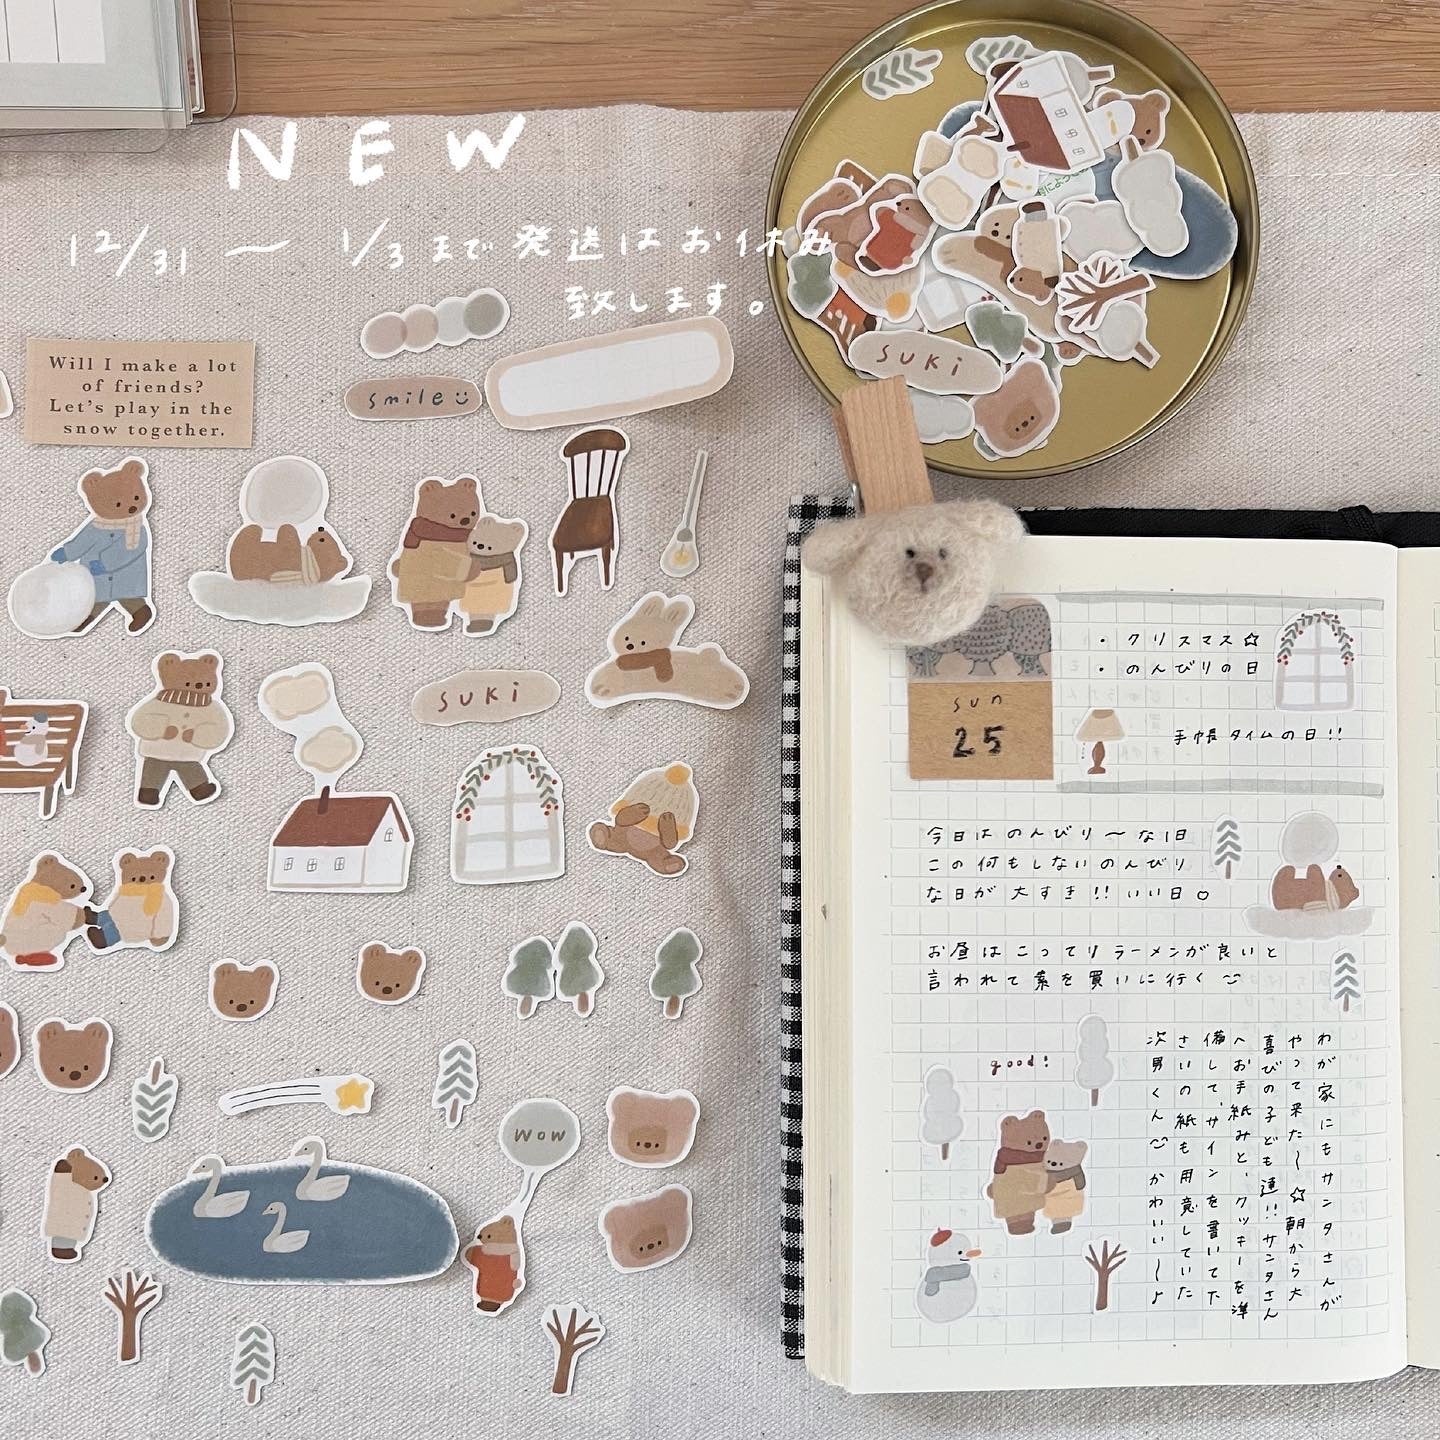 NEW
12/31 〜 1/3まで発送はお休み
致します。
Will I make a lot
of friends?
Let's play in the
snow together.
smile
SUKi
SUKi
WOW
sun
25
・クリスマス☆
・のんびりの日
手帳タイムの日!!
今日はのんびり〜な1日
この何もしないのんびり
な日が大すき!! いい日♡
お昼はこってりラーメンが良いと
言われて素を買いに行く
good!
わが家にもサンタさんが
やって来た〜☆朝から大
喜びの子ども達!!サンタさん
へお手紙みと、クッキーを準
備して、サインを書いて下
さいの紙も用意していた
次男くん かわいい〜よ